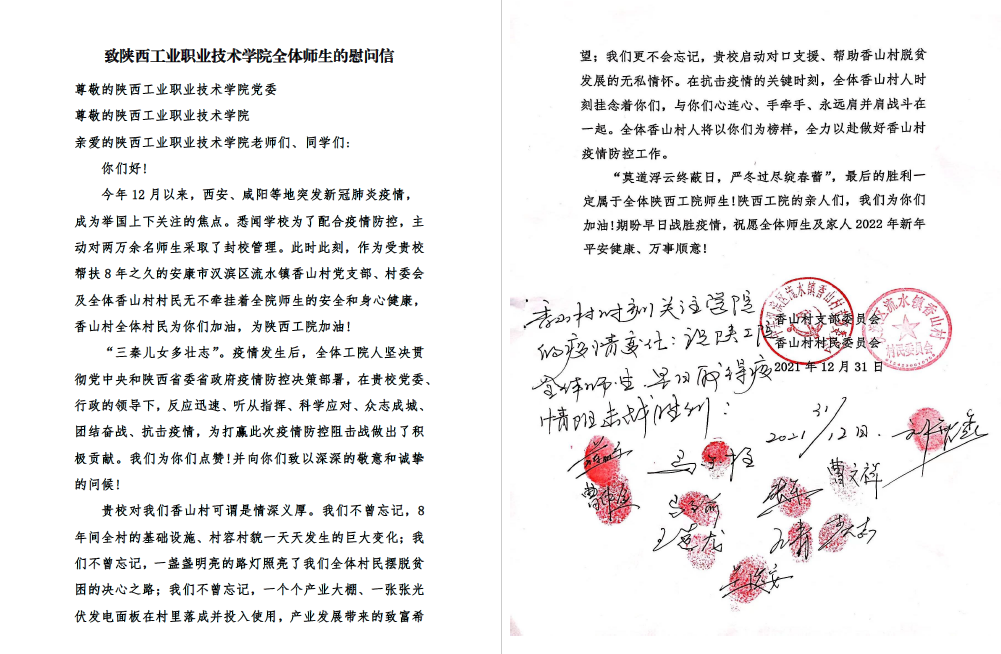 致陕西工业职业技术学院全体师生的慰问信
尊敬的陕西工业职业技术学院党委
尊敬的陕西工业职业技术学院
亲爱的陕西工业职业技术学院老师们、同学们：
你们好！
今年 12 月以来，西安、咸阳等地突发新冠肺炎疫情，
成为举国上下关注的焦点。悉闻学校为了配合疫情防控，主
动对两万余名师生采取了封校管理。此时此刻，作为受贵校
帮扶 8 年之久的安康市汉滨区流水镇香山村党支部、村委会
及全体香山村村民无不牵挂着全院师生的安全和身心健康，
香山村全体村民为你们加油，为陕西工院加油！
“三秦儿女多壮志”。疫情发生后，全体工院人坚决贯
彻党中央和陕西省委省政府疫情防控决策部署，在贵校党委、
行政的领导下，反应迅速、听从指挥、科学应对、众志成城、
团结奋战、抗击疫情，为打赢此次疫情防控阻击战做出了积
极贡献。我们为你们点赞！并向你们致以深深的敬意和诚挚
的问候！
贵校对我们香山村可谓是情深义厚。我们不曾忘记，8
年间全村的基础设施、村容村貌一天天发生的巨大变化；我
们不曾忘记，一盏盏明亮的路灯照亮了我们全体村民摆脱贫
困的决心之路；我们不曾忘记，一个个产业大棚、一张张光
伏发电面板在村里落成并投入使用，产业发展带来的致富希
望；我们更不会忘记，贵校启动对口支援、帮助香山村脱贫
发展的无私情怀。在抗击疫情的关键时刻，全体香山村人时
刻挂念着你们，与你们心连心、手牵手、永远肩并肩战斗在
一起。全体香山村人将以你们为榜样，全力以赴做好香山村
疫情防控工作。
“莫道浮云终蔽日，严冬过尽绽春蕾”，最后的胜利一
定属于全体陕西工院师生！陕西工院的亲人们，我们为你们
加油！期盼早日战胜疫情，祝愿全体师生及家人 2022 年新年
平安健康、万事顺意！
香山村支部委员会
香山村村民委员会
2021 年 12 月 31 日
香山村时刻关注学院
的疫情变化：设陕工院
全体师生早日取得疫
情阻击战胜利：
2021/12日.
31/
曹文祥